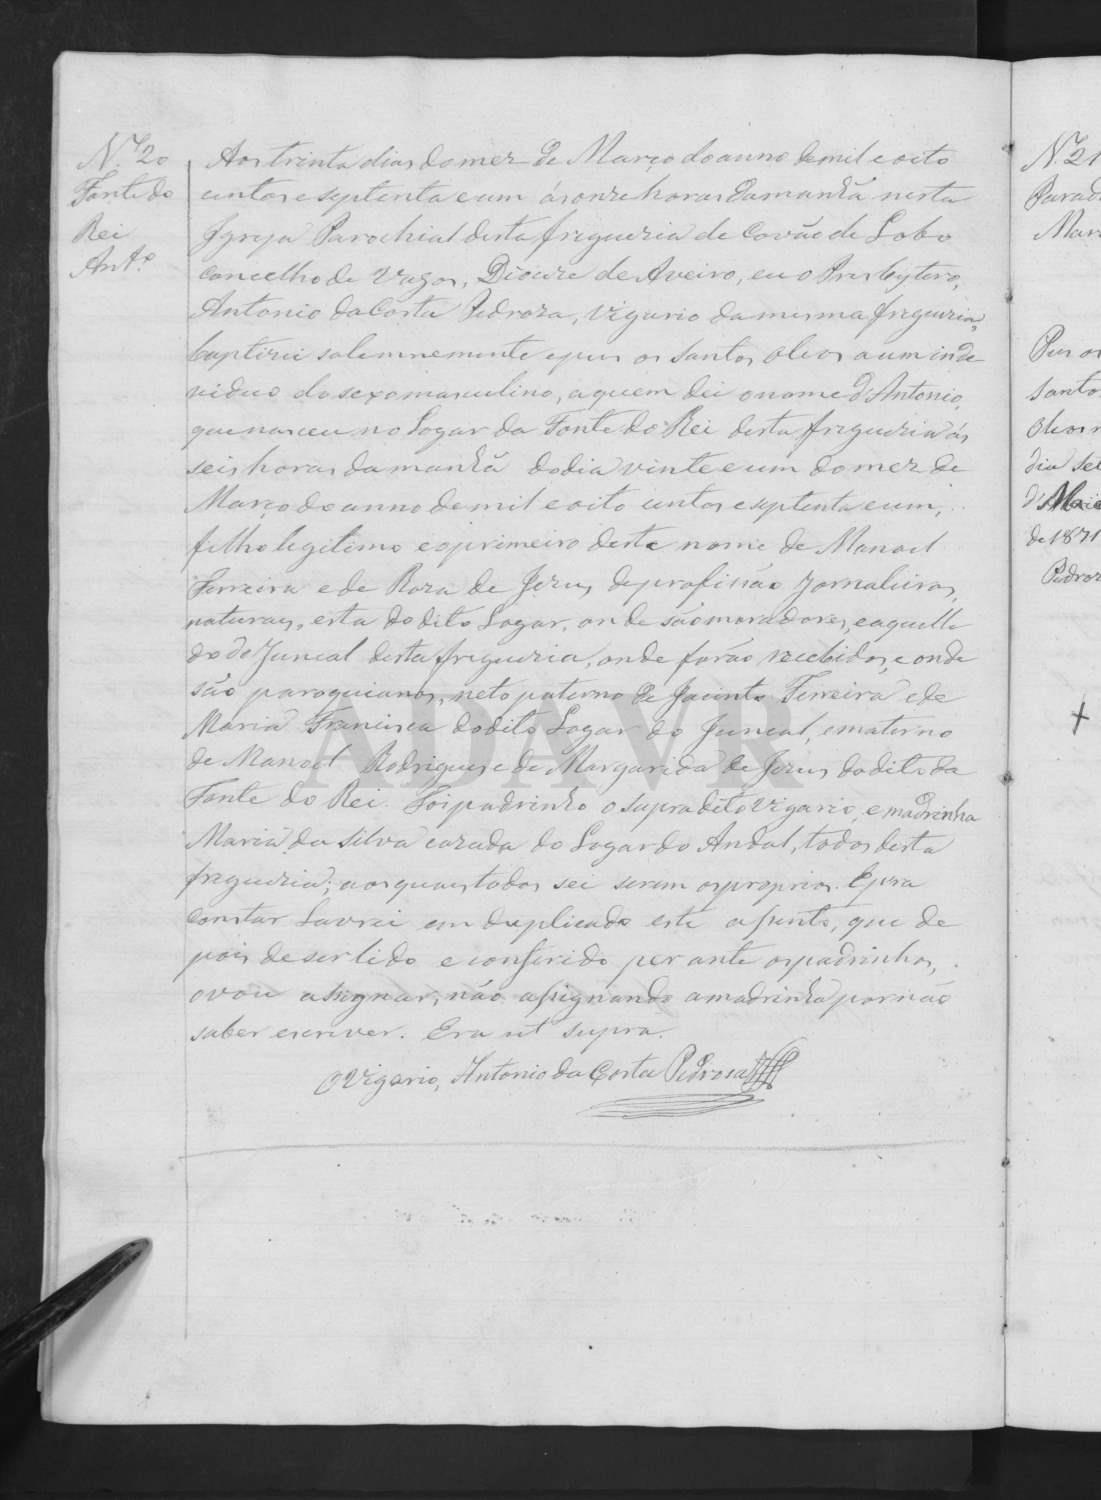 N.º 20
Fonte do
Rei
Ant.º
Aos trinta dias do mez de Março do anno de mil e oito
centos e septenta e um ás onze horas da manhã nesta
Igreja Parochial desta freguezia de Covão de Lobo
concelho de Vagos, Diocese de Aveiro, eu o Presbytero,
Antonio da Costa Pedroza, vigario da mesma freguezia,
baptizei solemnemente e pus os santos oleos a um inde
viduo do sexo masculino, a quem dei o nome d'Antonio,
que nasceu no Logar da Fonte do Rei desta freguezia ás
seis horas da manhã do dia vinte e um do mez de
Março do anno de mil e oito centos e septenta e um,
filho legitimo e o primeiro deste nome de Manoel
Ferreira e de Roza de Jezus de profissão Jornaleiros,
naturaes, esta do dito Logar, onde são moradores, e aquelle
do do Juncal desta freguezia, onde forão recebidos, e onde
são paroquianos, neto paterno de Jacinto Ferreira e de
Maria Francisca do dito Logar do Juncal, e materno
de Manoel Rodrigues e de Margarida de Jezus do dito da
Fonte do Rei. Foi padrinho o supradito vigario, e madrinha
Maria da Silva cazada do Logar do Andal, todos desta
freguezia; aos quaes todos sei serem os proprios. E pra
constar Lavrei em duplicado este assento, que de
pois de ser lido e conferido perante os padrinhos,
o vou assignar, não assignando a madrinha por não
saber escrever. Era ut supra.
O Vigario, Antonio da Costa Pedroza
ADAVR
N.º 21
Parad
Mari
Pus os
santos
oleos n
dia set
d'Maio
de 1871
Pedroz